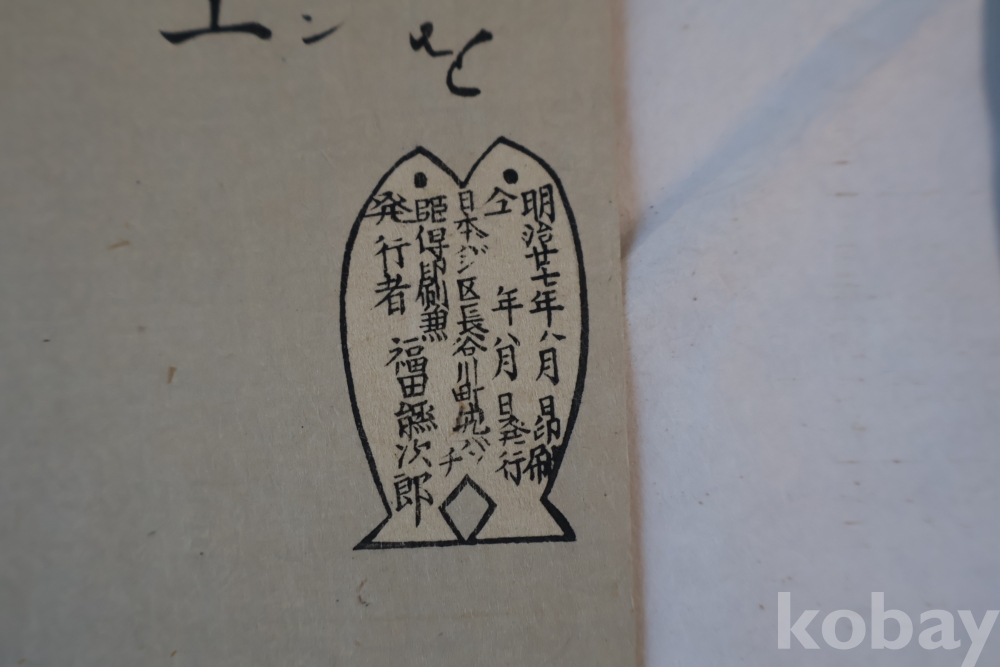 ヱン
明治廿七年八月 日印刷
仝 年八月 日発行
日本バシ区長谷川町
臨写印刷兼
発行者 福田熊次郎
kobay